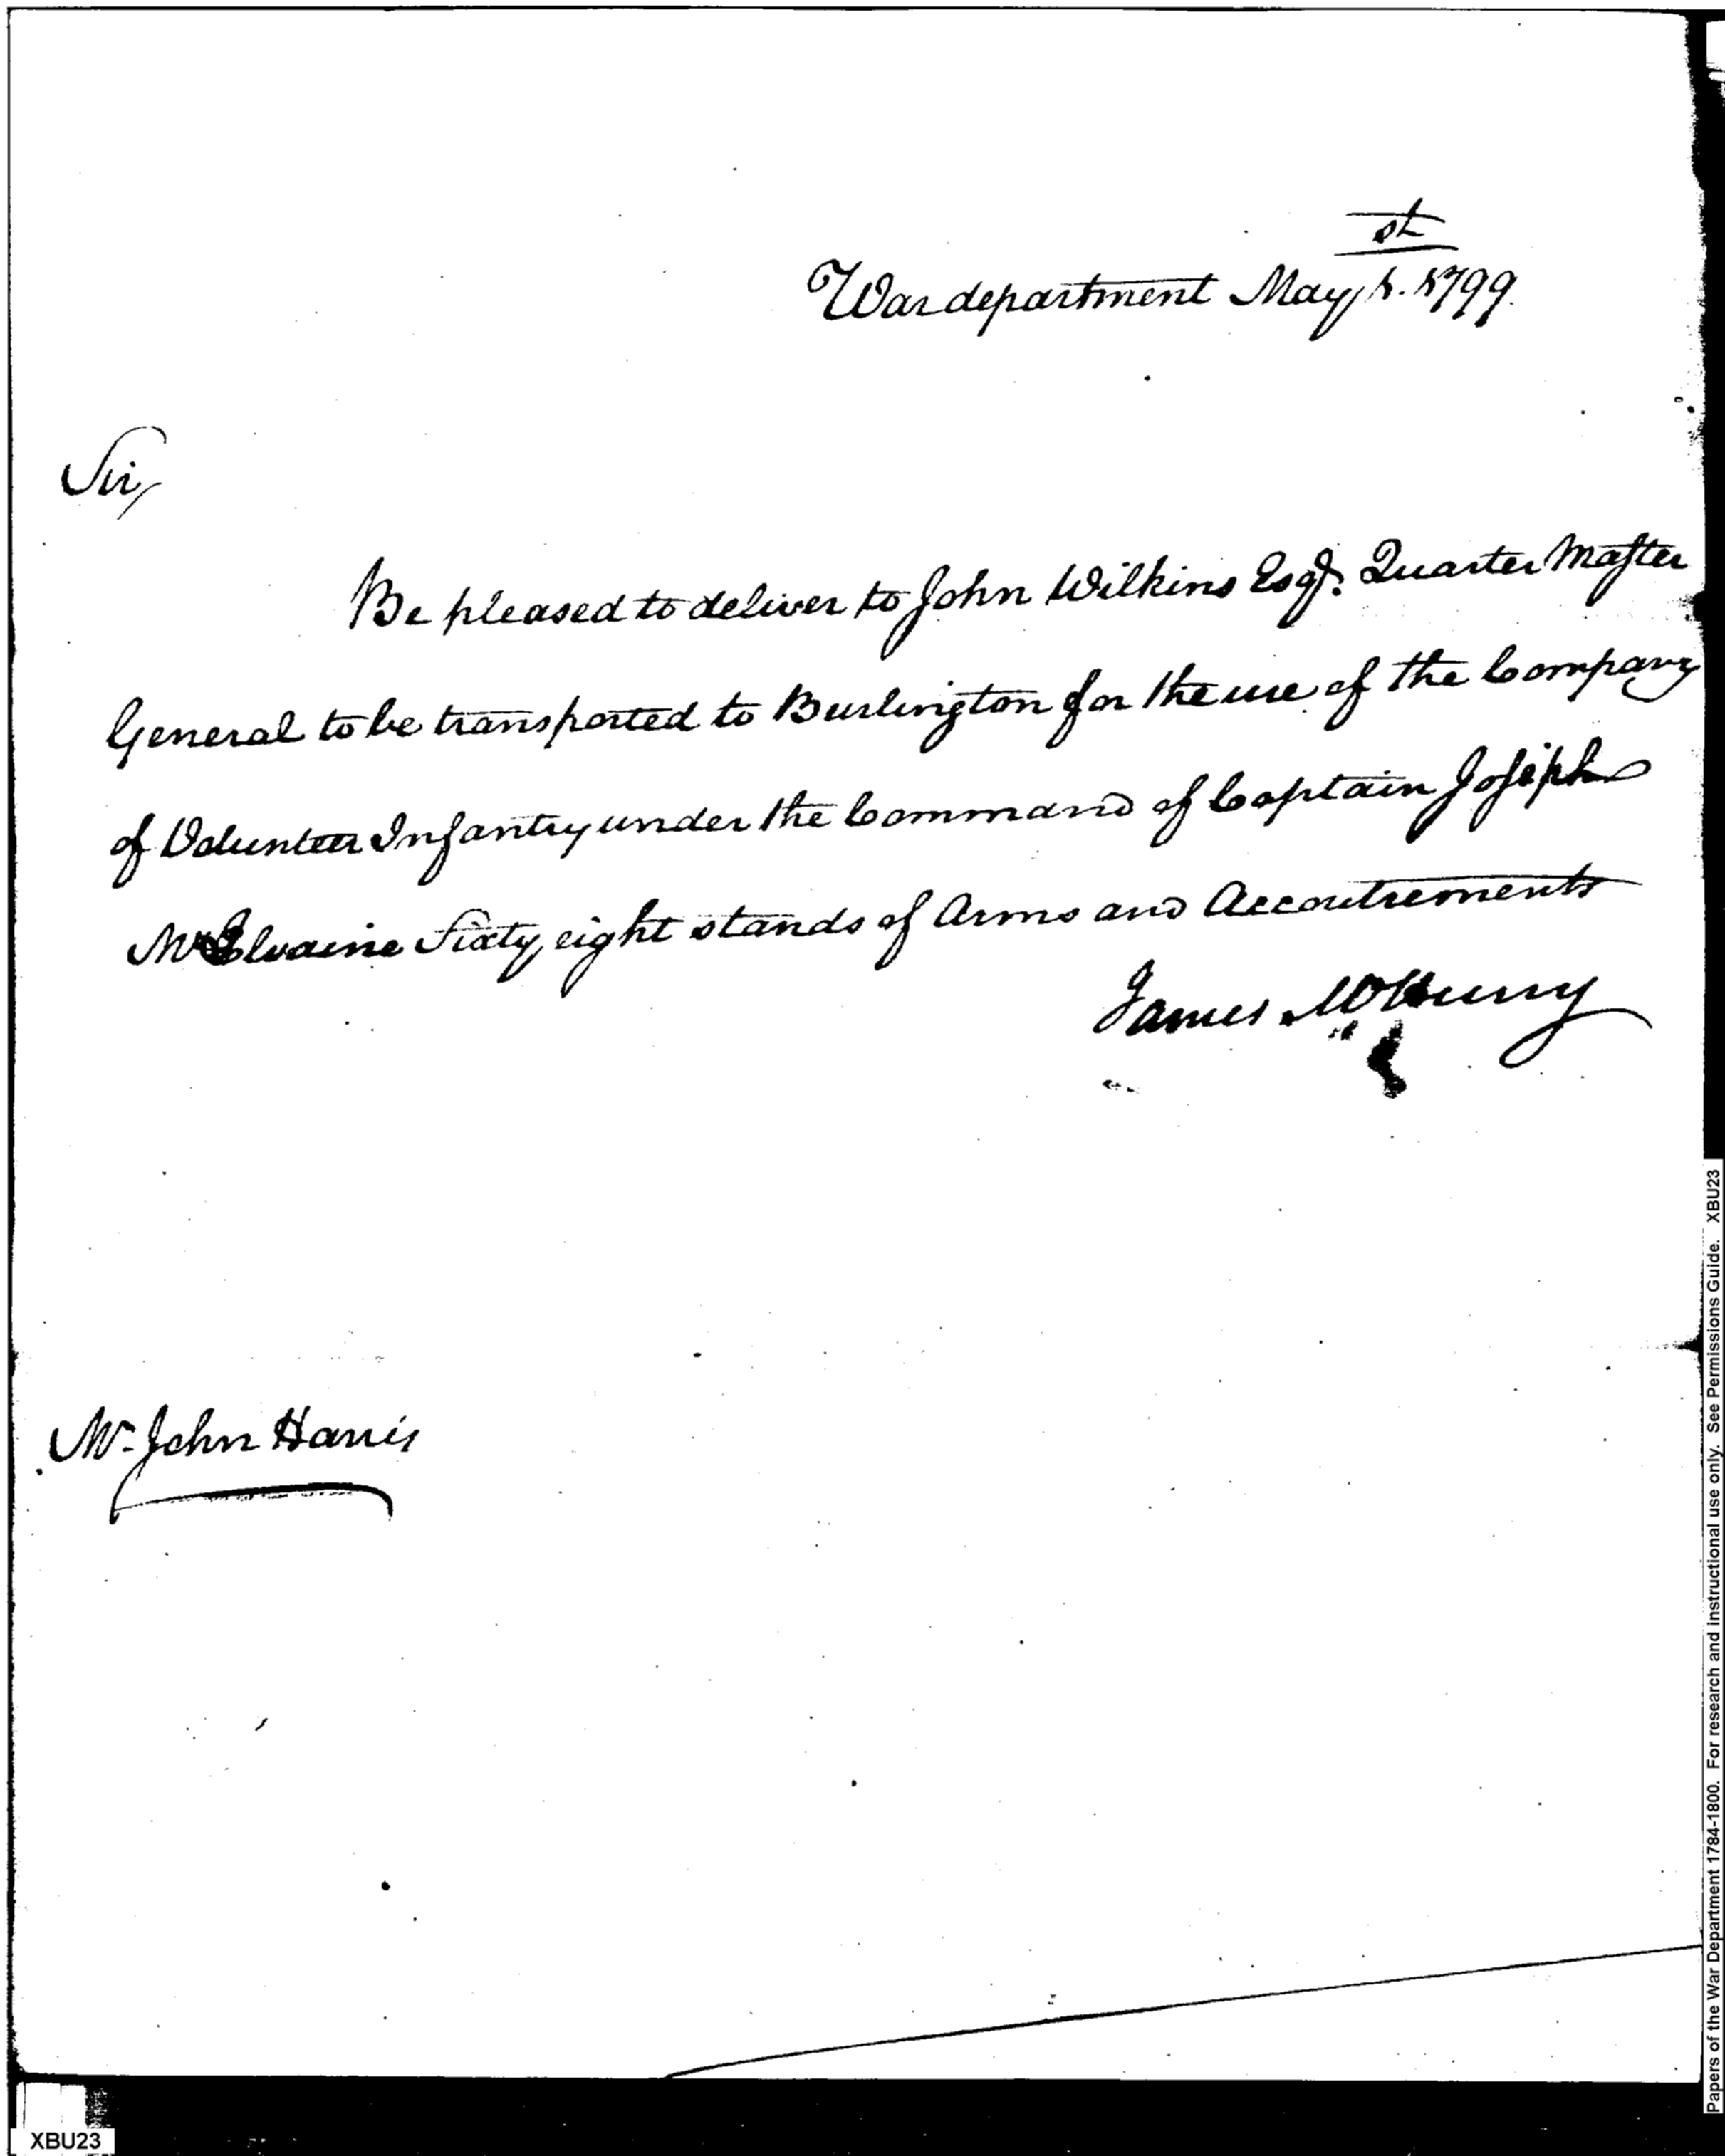 War department May 1st. 1799.
Sir,
Be pleased to deliver to John Wilkins Esqr. Quarter Master
General to be transported to Burlington for the use of the Company
of Volunteer Infantry under the Command of Captain Joseph
McIlvaine Sixty eight stands of Arms and Accoutrements
James McHenry
Mr. John Harris
Papers of the War Department 1784-1800. For research and instructional use only. See Permissions Guide. XBU23
XBU23